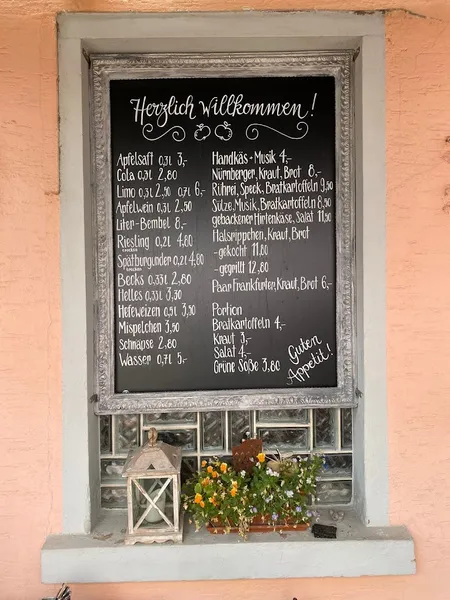 Herzlich willkommen!
Apfelsaft 0,3L 3,-
Cola 0,2L 2,80
Limo 0,3L 2,90 0,7L 6,-
Apfelwein 0,3L 2,50
Liter-Bembel 8,-
Riesling 0,2L 4,60
trocken
Spätburgunder 0,2L 4,80
trocken
Becks 0,33L 2,80
Helles 0,33L 3,50
Hefeweizen 0,5L 3,90
Mispelchen 3,50
Schnäpse 2,80
Wasser 0,7L 5,-
Handkäs-Musik 4,-
Nürnberger, Kraut, Brot 8,-
Rührei, Speck, Bratkartoffeln 9,50
Sülze, Musik, Bratkartoffeln 8,50
gebackener Hirtenkäse, Salat 11,50
Halsrippchen, Kraut, Brot
-gekocht 11,80
-gegrillt 12,80
Paar Frankfurter, Kraut, Brot 6,-
Portion
Bratkartoffeln 4,-
Kraut 3,-
Salat 4,-
Grüne Soße 3,80
Guten
Appetit!